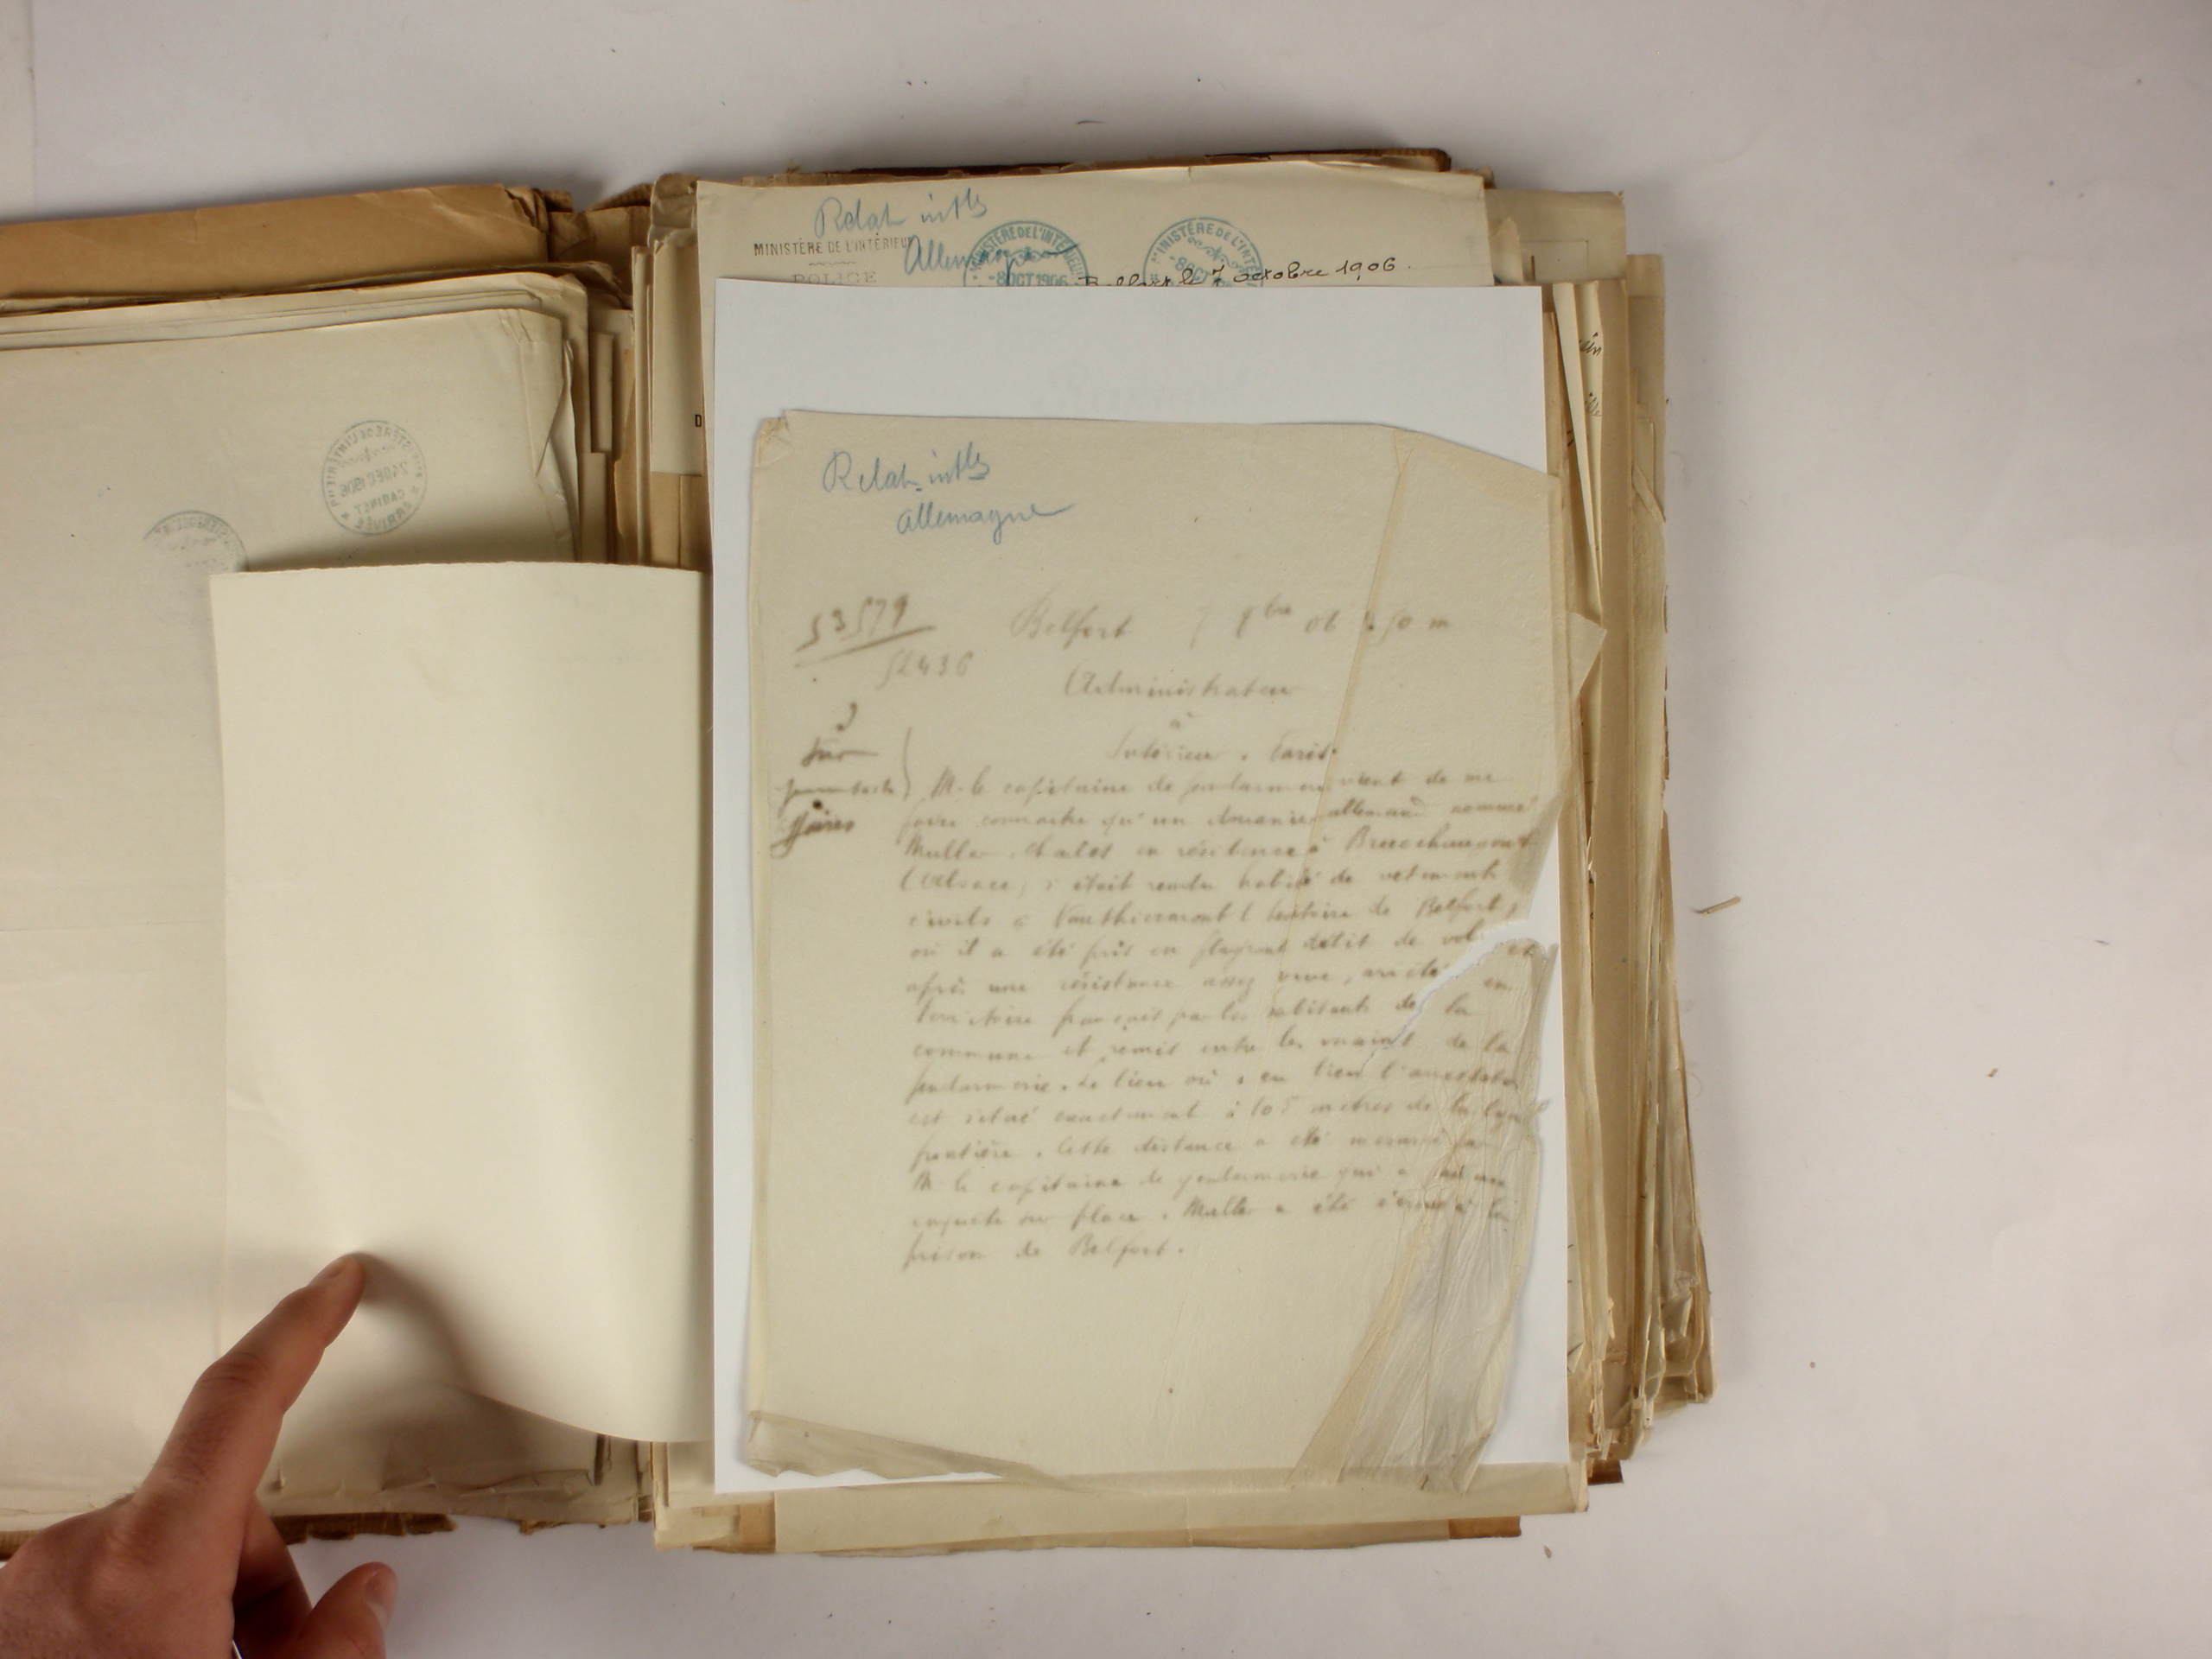 Relat intles
MINISTÈRE DE L'INTÉRIEUR
Allemagne
POLICE
MINISTÈRE DE L'INTÉRIEUR
-8 OCT 1906
MINISTÈRE DE L'INTÉ
-8 OCT
Belfort le 7 octobre 1906.
Relat. intles
Allemagne
53579
52436
Belfort 7 bre 06 50 m
Administrateur
à
Intérieur. Paris.
Sur
M. le capitaine de gendarmerie vient de me
faire connaître qu'un douanier allemand nommé
Muller Charles en résidence à
(Alsace) s'était rendu habillé de vetements
civils à Vauthiermont (territoire de Belfort)
où il a été pris en flagrant délit de vol et
après une résistance assez vive, arrêté en
territoire français par les habitants de la
commune et remis entre les mains de la
gendarmerie. Le lieu où a eu lieu l'arrestation
est situé exactement à 105 metres de la ligne
frontière. Cette distance a été mesurée par
M. le capitaine de gendarmerie qui a fait une
enquête sur place. Muller a été écroué à la
prison de Belfort.